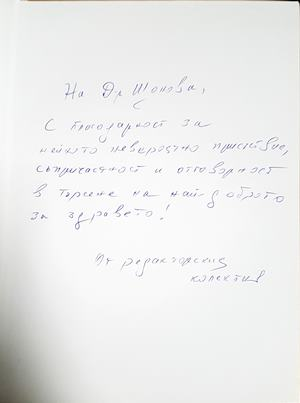 На Др Шонова,
С благодарност за
нейното невероятно присъствие,
съпричастност и отговорност
в търсене на най-доброто
за здравето!
От редакторския
колектив